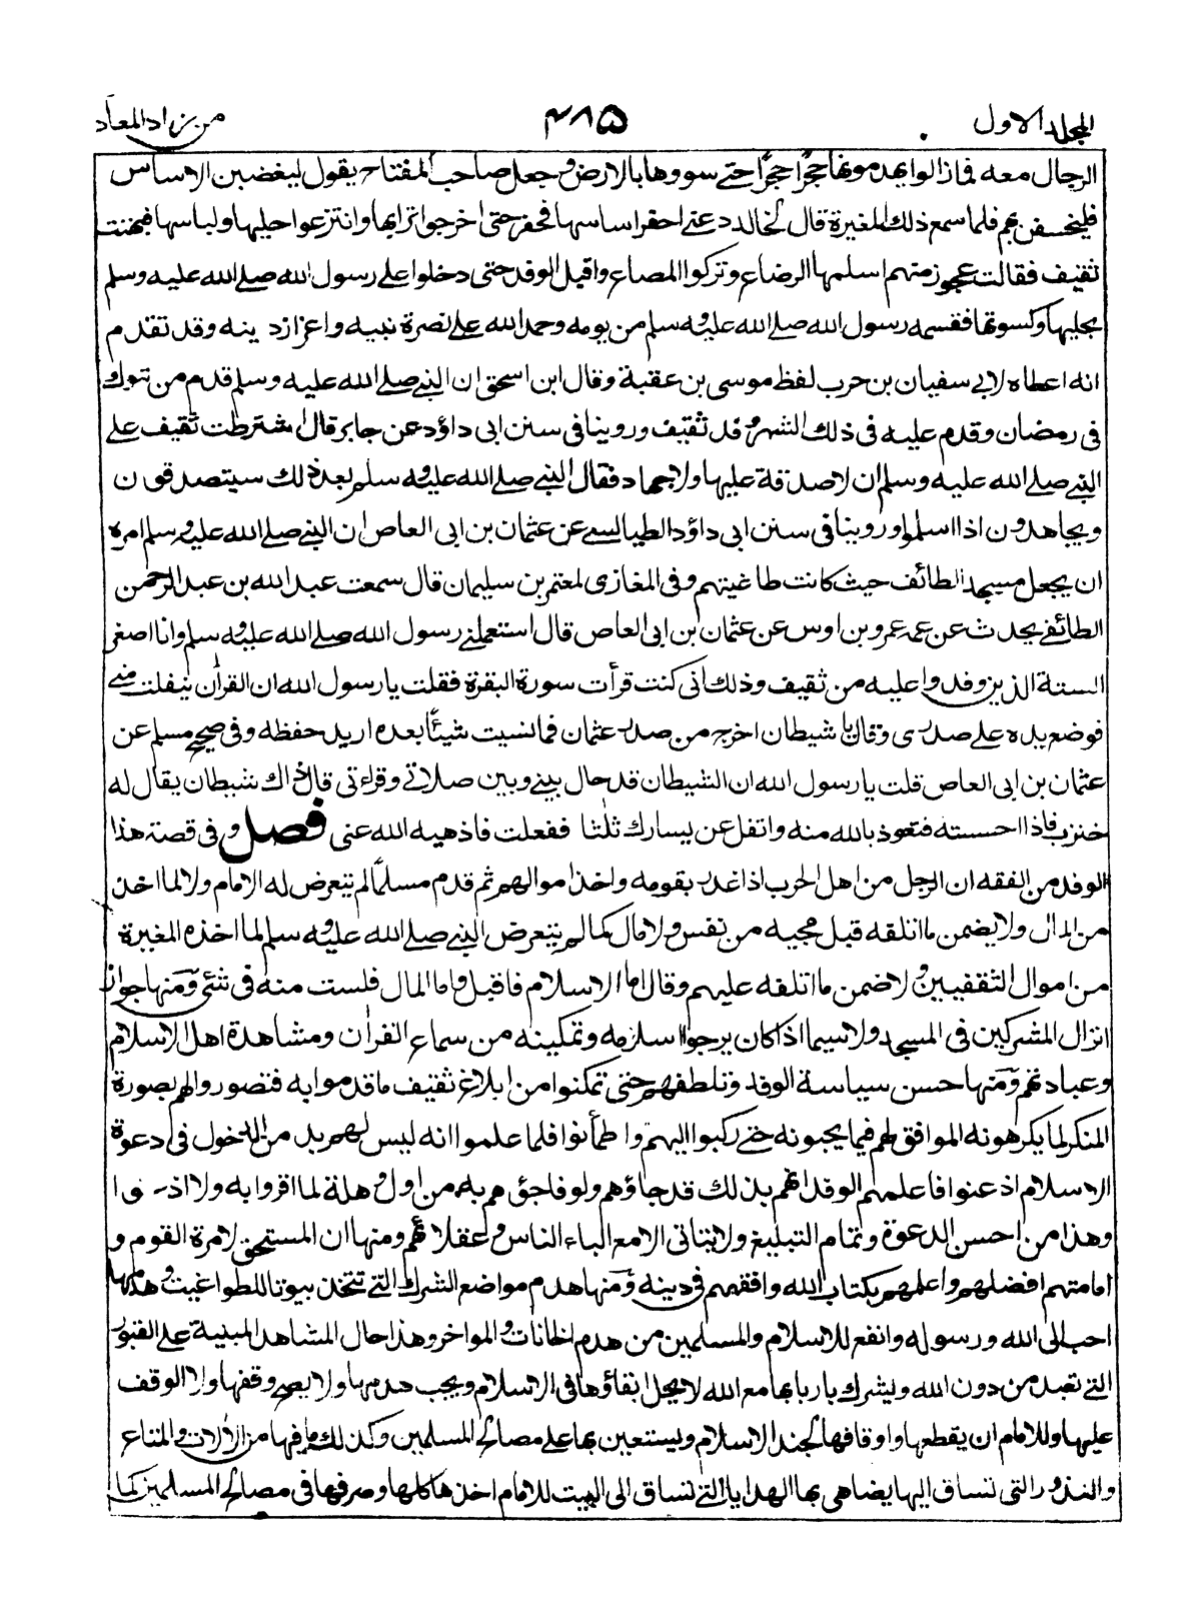 المجلد الاول ۴۸۵ من زاد المعاد
الرجال معه فمازالوا يهدمونها حجرًا حجرًا حتى سووها بالارض وجعل صاحب المفتاح يقول ليغضبن الاساس
فليخسفن بهم فلما سمع ذلك المغيرة قال لخالد دعني احفر اساسها فحفر حتى اخرجوا ترابها وانتزعوا حليها ولباسها فبهتت
ثقيف فقالت عجوز منهم اسلمها الرضاع وتركوا المصاع واقبل الوفد حتى دخلوا على رسول الله صلى الله عليه وسلم
بحليها وكسوتها فقسمه رسول الله صلى الله عليه وسلم من يومه وحمد الله على نصرة نبيه واعزاز دينه وقد تقدم
انه اعطاه لابي سفيان بن حرب لفظ موسى بن عقبة وقال ابن اسحق ان النبي صلى الله عليه وسلم قدم من تبوك
في رمضان وقدم عليه في ذلك الشهر وفد ثقيف وروينا في سنن ابي داؤد عن جابر قال اشترطت ثقيف على
النبي صلى الله عليه وسلم ان لا صدقة عليها ولا جهاد فقال النبي صلى الله عليه وسلم بعد ذلك سيتصدقون
ويجاهدون اذا اسلموا وروينا في سنن ابي داؤد الطيالسي عن عثمان بن ابي العاص ان النبي صلى الله عليه وسلم امره
ان يجعل مسجد الطائف حيث كانت طاغيتهم وفي المغازي لمعتمر بن سليمان قال سمعت عبد الله بن عبد الرحمن
الطائفي يحدث عن عمه عمرو بن اوس عن عثمان بن ابي العاص قال استعملني رسول الله صلى الله عليه وسلم وانا اصغر
الستة الذين وفدوا عليه من ثقيف وذلك اني كنت قرأت سورة البقرة فقلت يا رسول الله ان القرآن ينفلت مني
فوضع يده على صدري وقال يا شيطان اخرج من صدر عثمان فما نسيت شيئًا بعده اريد حفظه وفي صحيح مسلم عن
عثمان بن ابي العاص قلت يا رسول الله ان الشيطان قد حال بيني وبين صلاتي وقراءتي قال ذاك شيطان يقال له
خنزب فاذا احسسته فتعوذ بالله منه واتفل عن يسارك ثلثا ففعلت فاذهبه الله عني فصل وفي قصة هذا
الوفد من الفقه ان الرجل من اهل الحرب اذا غدر بقومه واخذ اموالهم ثم قدم مسلمًا لم يتعرض له الامام ولا لما اخذ
من المال ولا يضمن ما اتلفه قبل مجيه من نفس ولا مال كما لم يتعرض النبي صلى الله عليه وسلم لما اخذه المغيرة
من اموال الثقفيين ولا ضمن ما اتلفه عليهم وقال اما الاسلام فاقبل واما المال فلست منه في شئ ومنها جواز
انزال المشركين في المسجد ولا سيما اذا كان يرجوا اسلامه وتمكينه من سماع القرآن ومشاهدة اهل الاسلام
وعبادتهم ومنها حسن سياسة الوفد وتلطفهم حتى تمكنوا من ابلاغ ثقيف ما قدموا به فتصوروا لهم بصورة
المنكر لما يكرهونه الموافق لهم فيما يحبونه حتى ركبوا اليهم واطمأنوا فلما علموا انه ليس لهم بد من الدخول في دعوة
الاسلام اذعنوا فاعلمهم الوفد انهم بذلك قد جاؤهم ولو فاجؤهم به من اول وهلة لما اقروا به ولا اذعنوا
وهذا من احسن الدعوة وتمام التبليغ ولا يتاتى الا مع الباء الناس وعقلائهم ومنها ان المستحق لامرة القوم و
امامتهم افضلهم واعلمهم بكتاب الله وافقههم في دينه ومنها هدم مواضع الشرك التي تتخذ بيوتا للطواغيت وهدمها
احب الى الله ورسوله وانفع للاسلام والمسلمين من هدم الحانات والمواخر وهذا حال المشاهد المبنية على القبور
التي تعبد من دون الله ويشرك باربابها مع الله لا يحل ابقاؤها في الاسلام ويجب هدمها ولا يصح وقفها ولا الوقف
عليها وللامام ان يقطعها واوقافها لجند الاسلام ويستعين بها على مصالح المسلمين وكذلك ما فيها من الآلات والمتاع
والنذور التي تساق اليها يضاهى بها الهدايا التي تساق الى البيت للامام اخذها كلها وصرفها في مصالح المسلمين كما